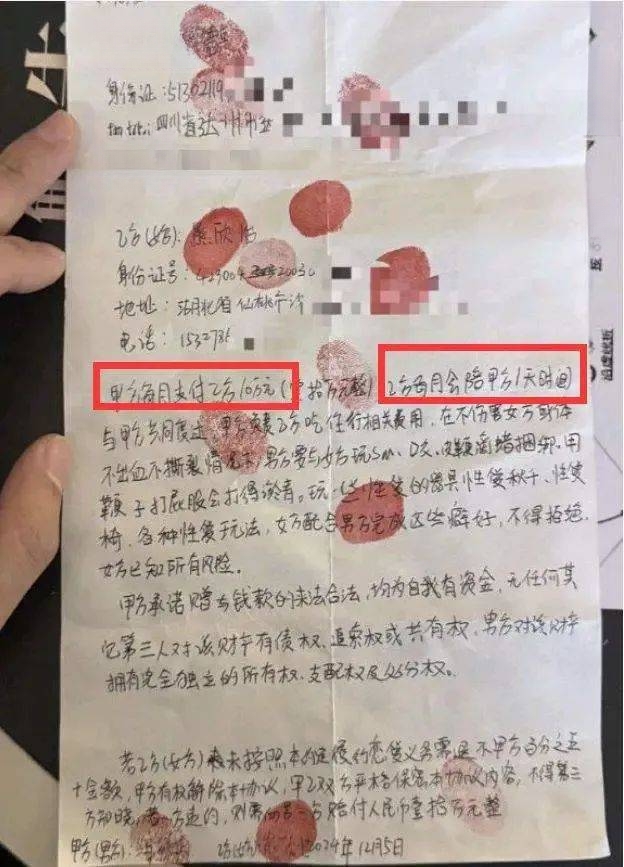 身份证:51302119
四川省达州市
乙方(女方):
身份证号:
地址:湖北省仙桃市沙
电话:
甲方每月支付乙方10万元(壹拾万元整)乙方每月会陪甲方1天时间
与甲方共同度过,甲方负责乙方吃住行相关费用,在不伤害女方或体
不出血不撕裂情况下男方要与女方玩Sm、皮鞭滴蜡捆绑.用
鞭子打屁股会打得淤青。玩一些性爱的器具性爱秋千、性爱
椅、各种性爱玩法,女方配合男方完成这些癖好,不得拒绝.
女方已知所有风险。
甲方承诺赠与钱款的来法合法,均为自我有资金,无任何其
它第三人对该财产有债权、追索权或共有权,男方对该财产
拥有完全独立的所有权、支配权及处分权。
若乙方(女方)未按照本约定履行恋爱义务需退还甲方百分之五
十金额,甲方有权解除本协议,甲乙双方严格保密本协议内容,不得第三
方知晓,若一方违约,则需向另一方赔付人民币壹拾万元整
甲方(男方): 乙方(女方): 2024年12月5日